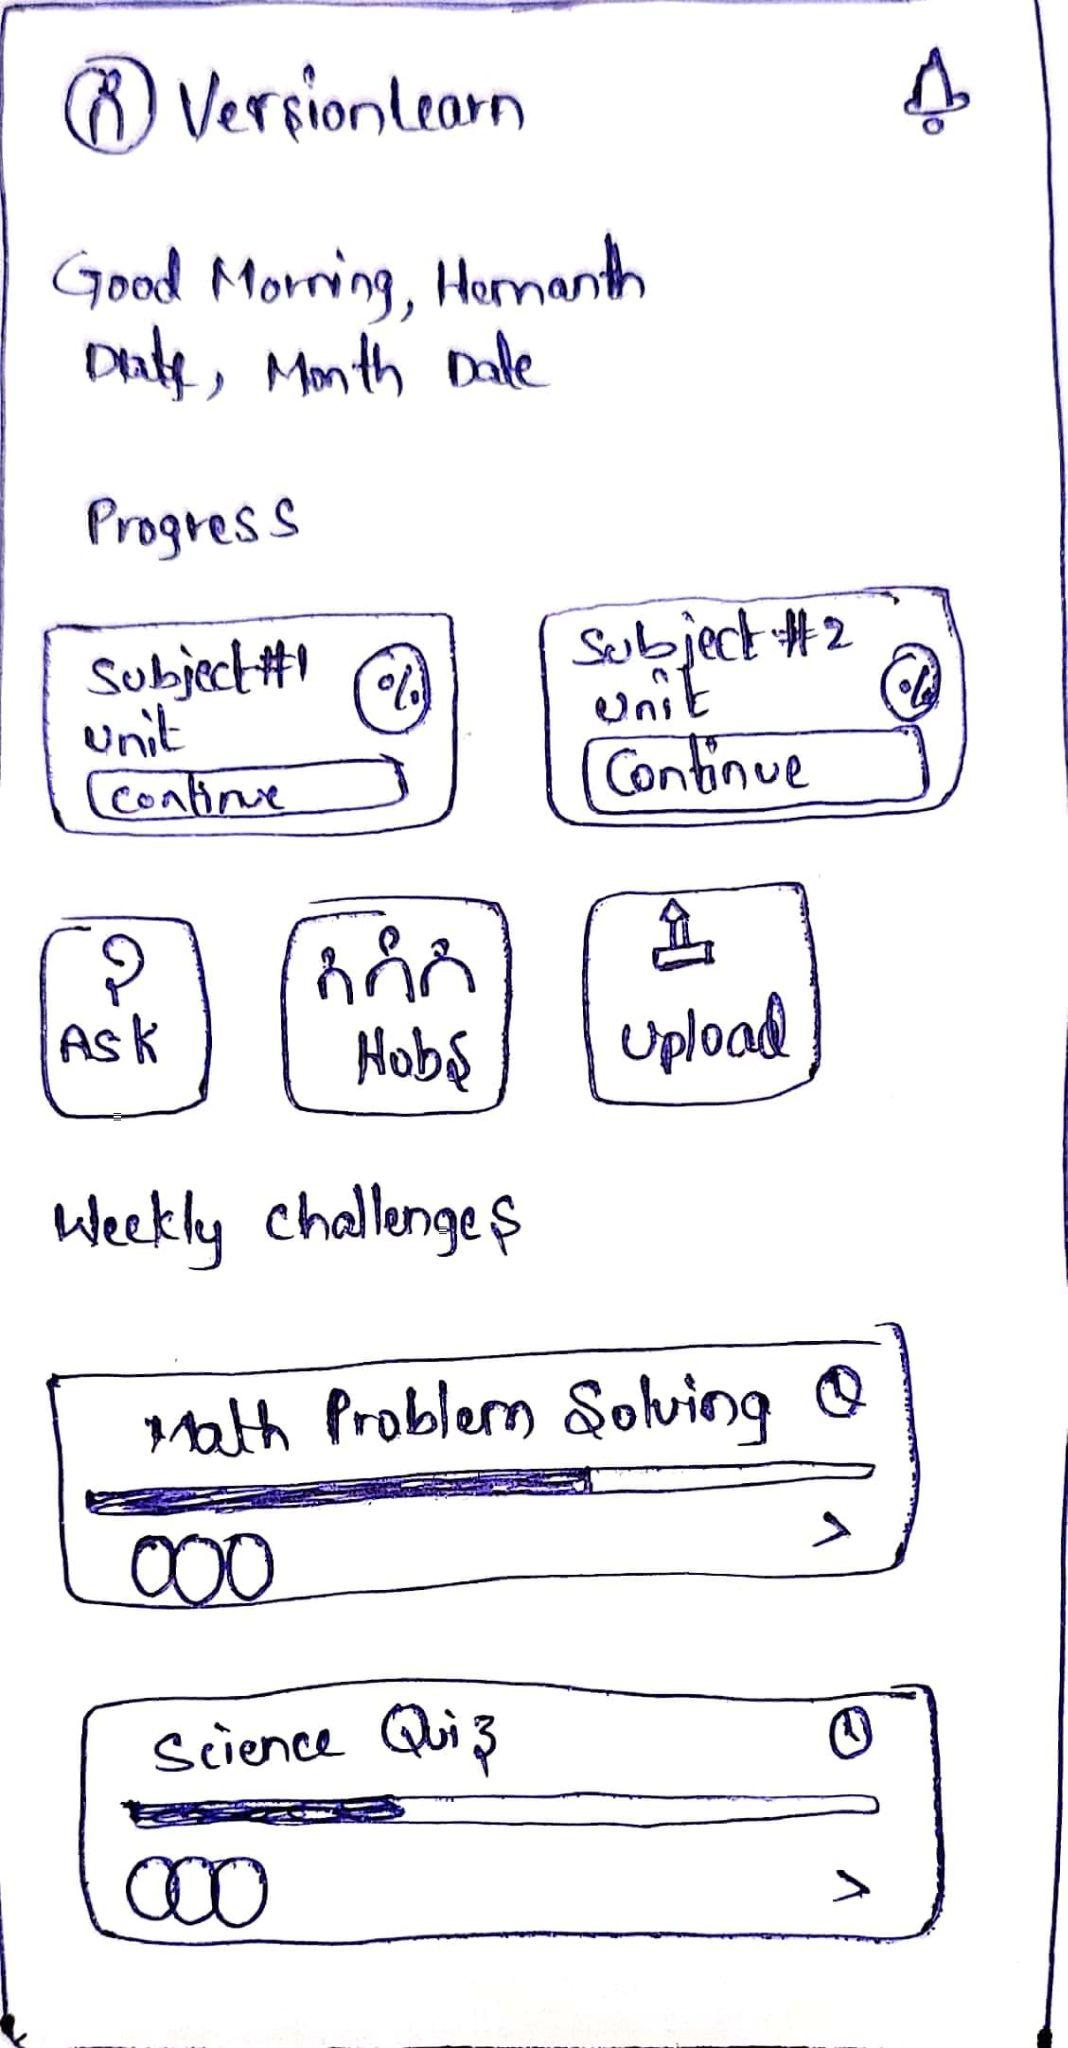 Versionlearn
Good Morning, Hemanth
Date, Month Date
Progress
Subject #1
%
unit
continue
Subject #2
%
unit
Continue
?
ASK
Hubs
Upload
Weekly challenges
Math Problem Solving
>
Science Quiz
>